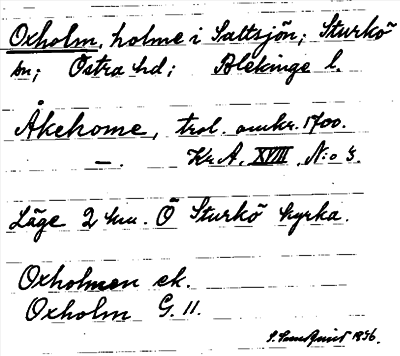 Oxholm, holme i Saltsjön; Sturkö
sn; Östra hd; Blekinge l.
Åkehome, trol. omkr. 1700.
—. Kr A. XVIII, N:o 3.
Läge 2 km. Ö Sturkö kyrka.
Oxholmen ek.
Oxholm G. 11.
S. 1936.